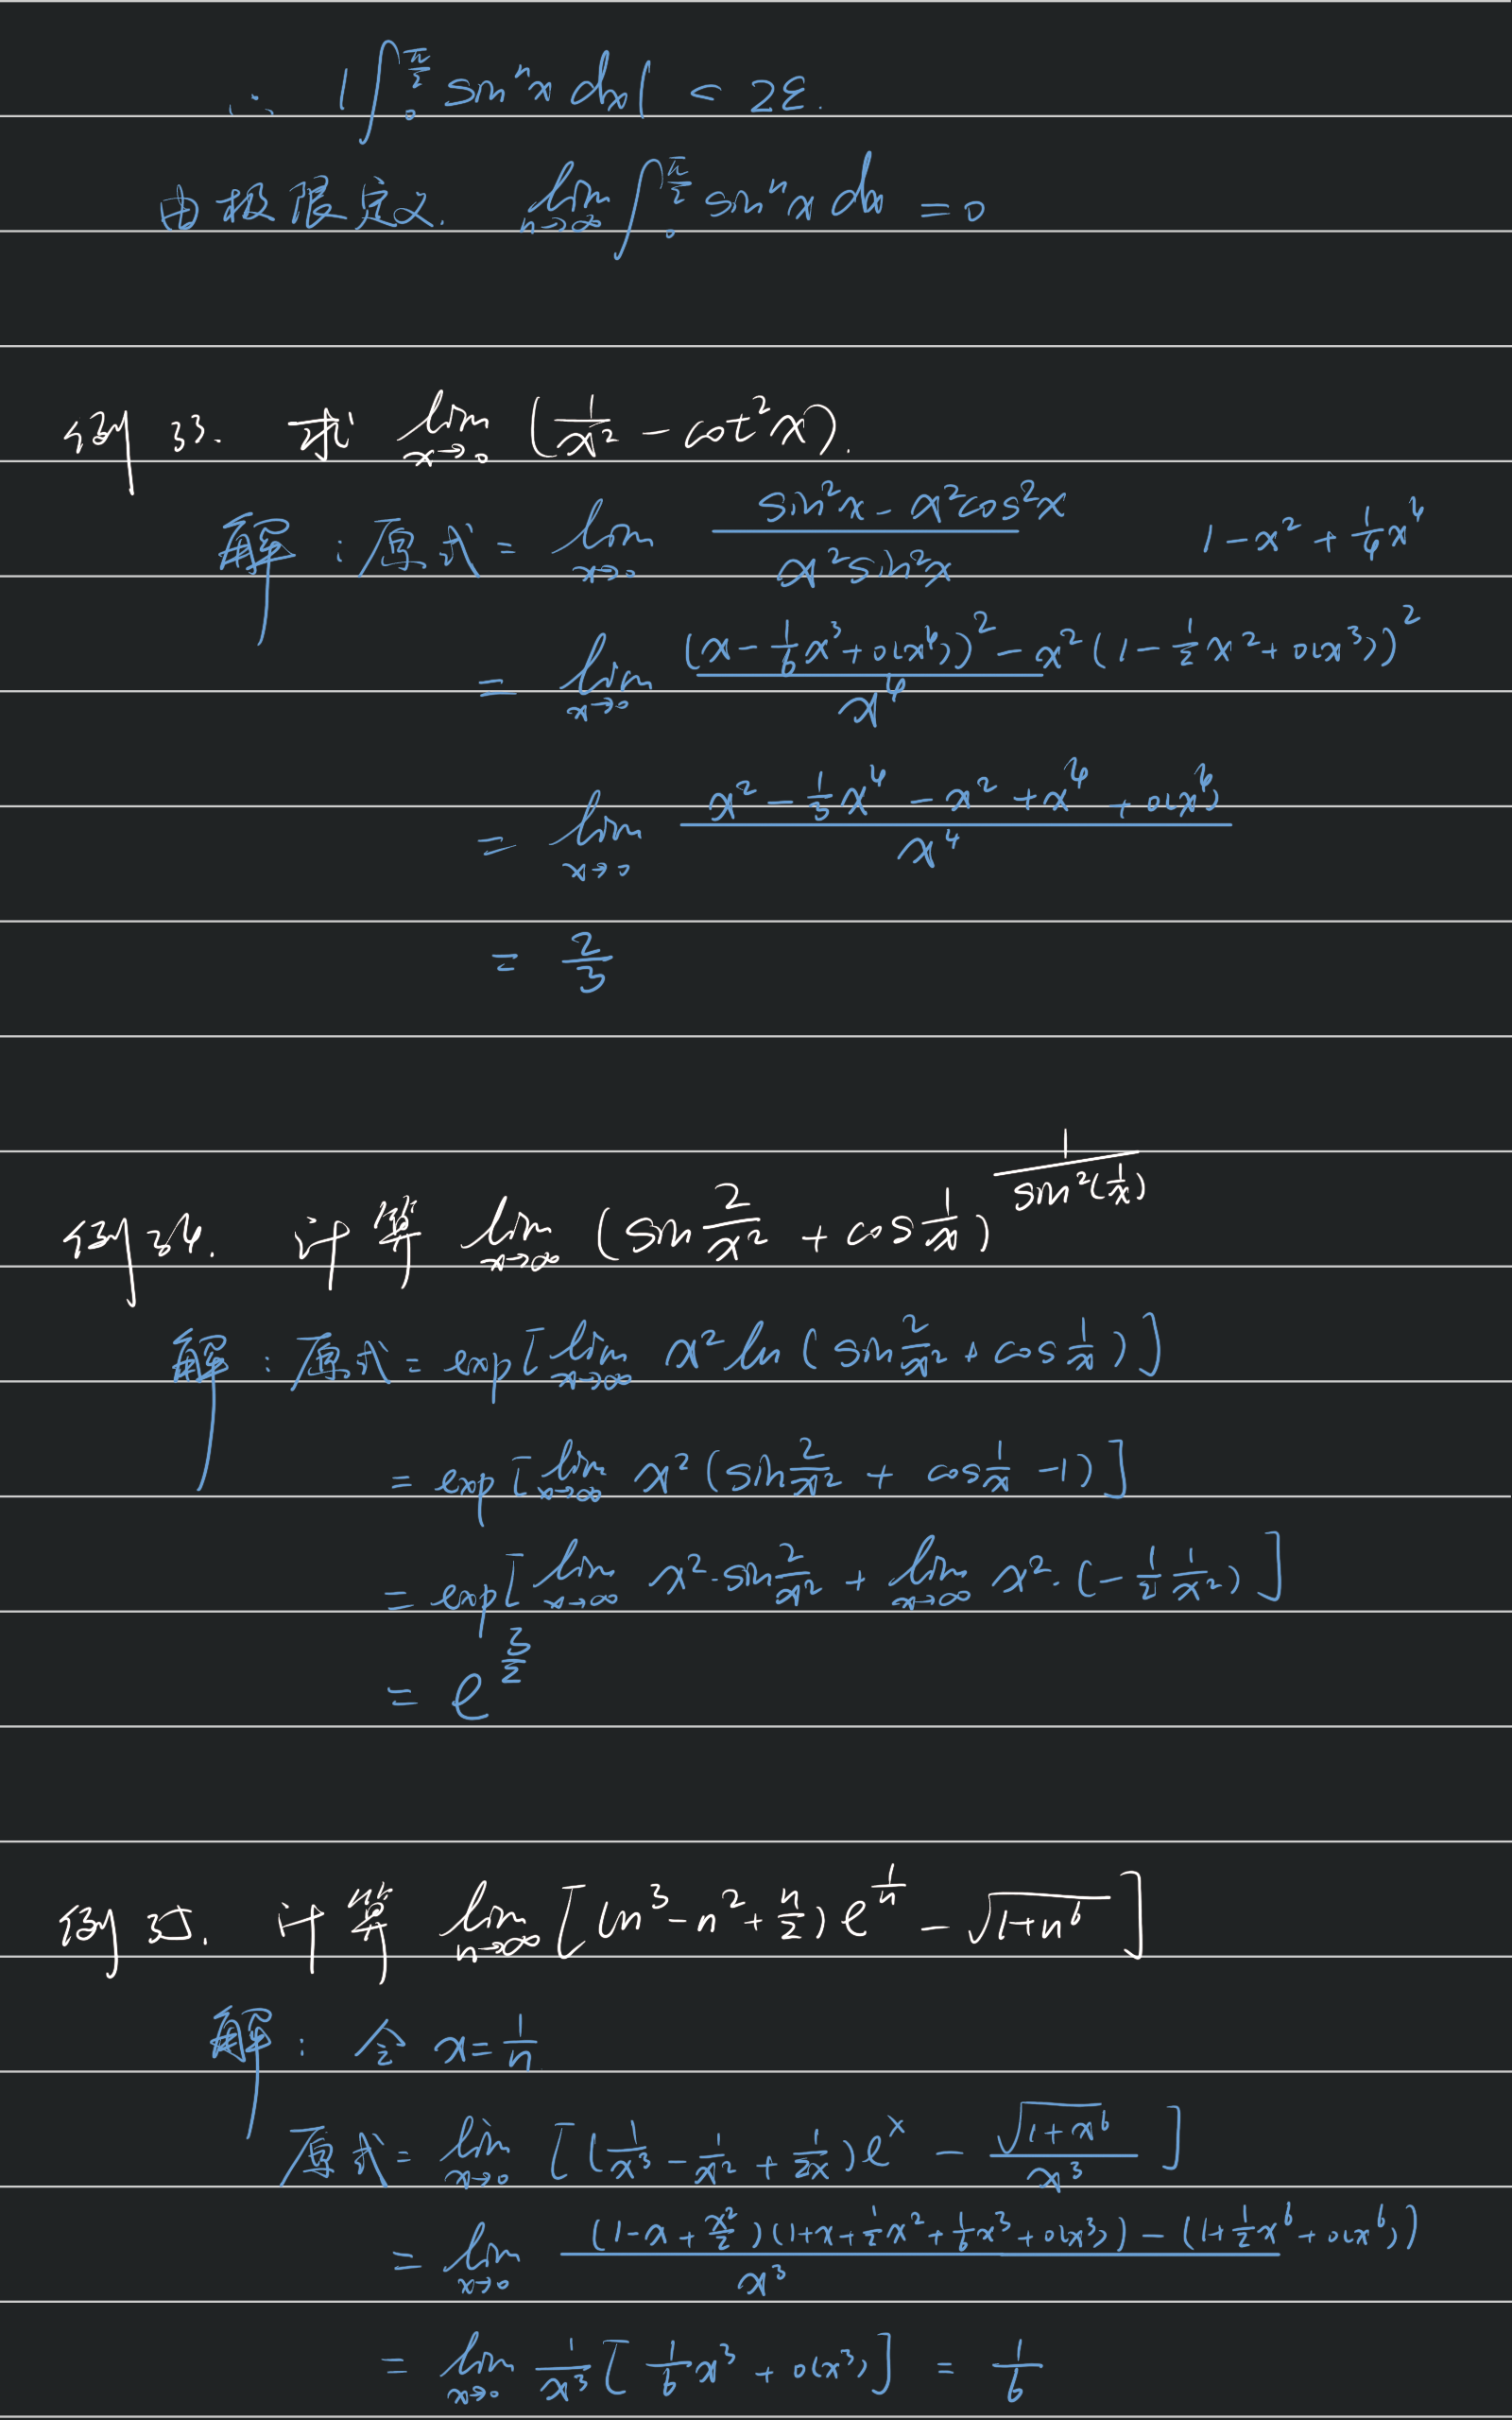 ∴ |∫₀^{π/2} sinⁿx dx| < 2ε.
由极限定义. lim_{n→∞} ∫₀^{π/2} sinⁿx dx = 0
例 33. 求 lim_{x→0} (1/x² - cot²x).
解：原式 = lim_{x→0} (sin²x - x²cos²x)/(x²sin²x) 1 - x² + 1/4 x⁴
= lim_{x→0} ((x - 1/6 x³ + o(x⁴))² - x²(1 - 1/2 x² + o(x³))²)/x⁴
= lim_{x→0} (x² - 1/3 x⁴ - x² + x⁴ + o(x⁴))/x⁴
= 2/3
例 34. 计算 lim_{x→∞} (sin 2/x² + cos 1/x)^{1/sin²(1/x)}
解：原式 = exp[lim_{x→∞} x² ln(sin 2/x² + cos 1/x)]
= exp[lim_{x→∞} x²(sin 2/x² + cos 1/x - 1)]
= exp[lim_{x→∞} x²·sin 2/x² + lim_{x→∞} x²·(-1/2 1/x²)]
= e^{3/2}
例 35. 计算 lim_{n→∞} [(n³ - n² + n/2)e^{1/n} - √(1+n⁶)]
解：令 x = 1/n
原式 = lim_{x→0} [(1/x³ - 1/x² + 1/2x)eˣ - √(1+x⁶)/x³]
= lim_{x→0} ((1 - x + x²/2)(1 + x + 1/2 x² + 1/6 x³ + o(x³)) - (1 + 1/2 x⁶ + o(x⁶)))/x³
= lim_{x→0} 1/x³ [1/6 x³ + o(x³)] = 1/6